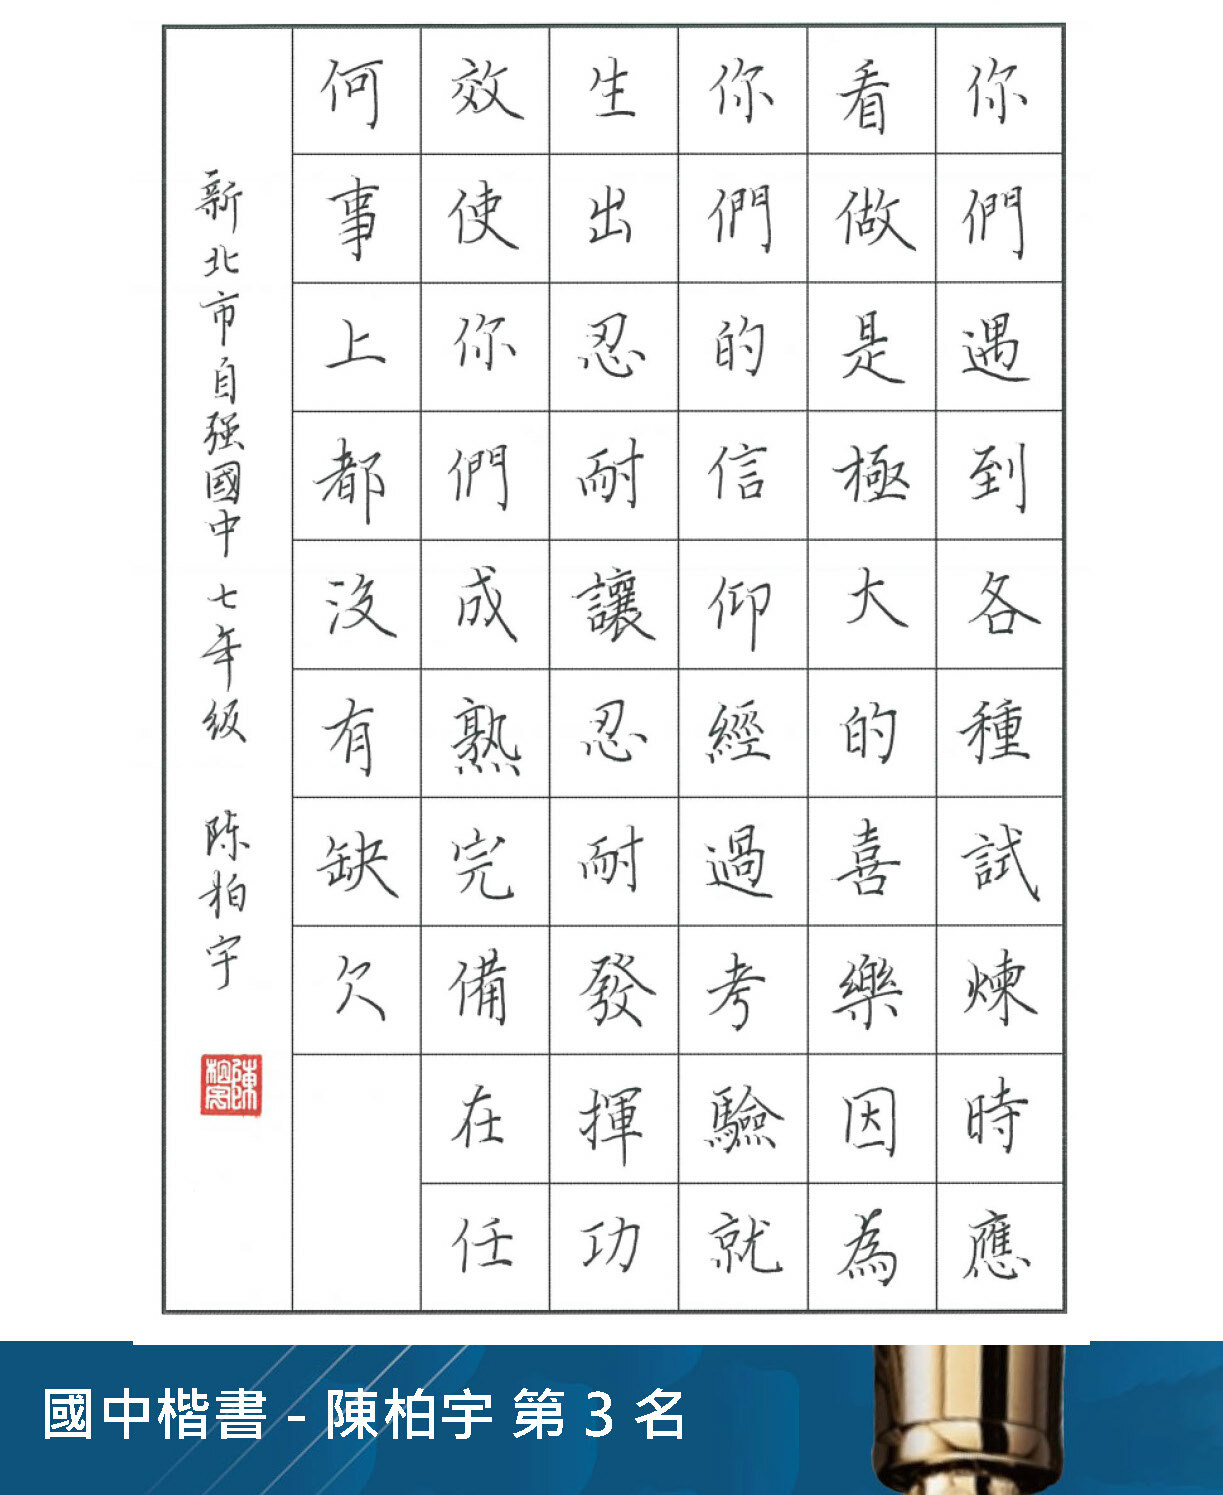 你們遇到各種試煉時應
看做是極大的喜樂因為
你們的信仰經過考驗就
生出忍耐讓忍耐發揮功
效使你們成熟完備在任
何事上都沒有缺欠
新北市自强國中七年級 陈柏宇
國中楷書 - 陳柏宇 第 3 名